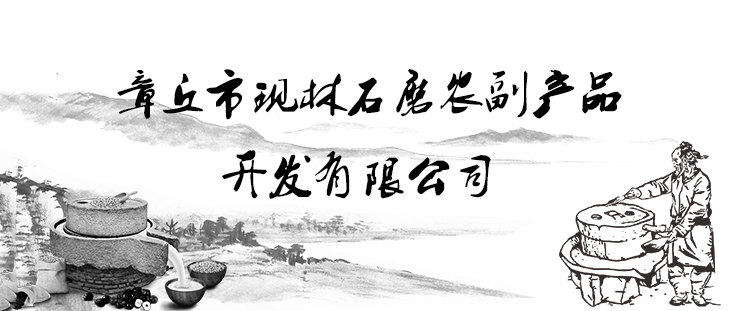 章丘市现林石磨农副产品
开发有限公司